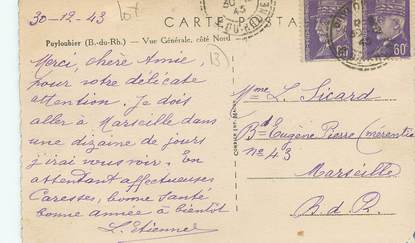 30-12-43
CARTE POSTALE
Puyloubier (B.-du-Rh.) — Vue Générale, côté Nord
Merci, chère Amie,
pour votre délicate
attention. Je dois
aller à Marseille dans
une dizaine de jours
j'irai vous voir. En
attendant affectueuses
Caresses, bonne santé
bonne année à bientôt
L. Etienne
13
60c
Mme L. Sicard
Bd Eugène Pierre
No 43
Marseille
B. d R.